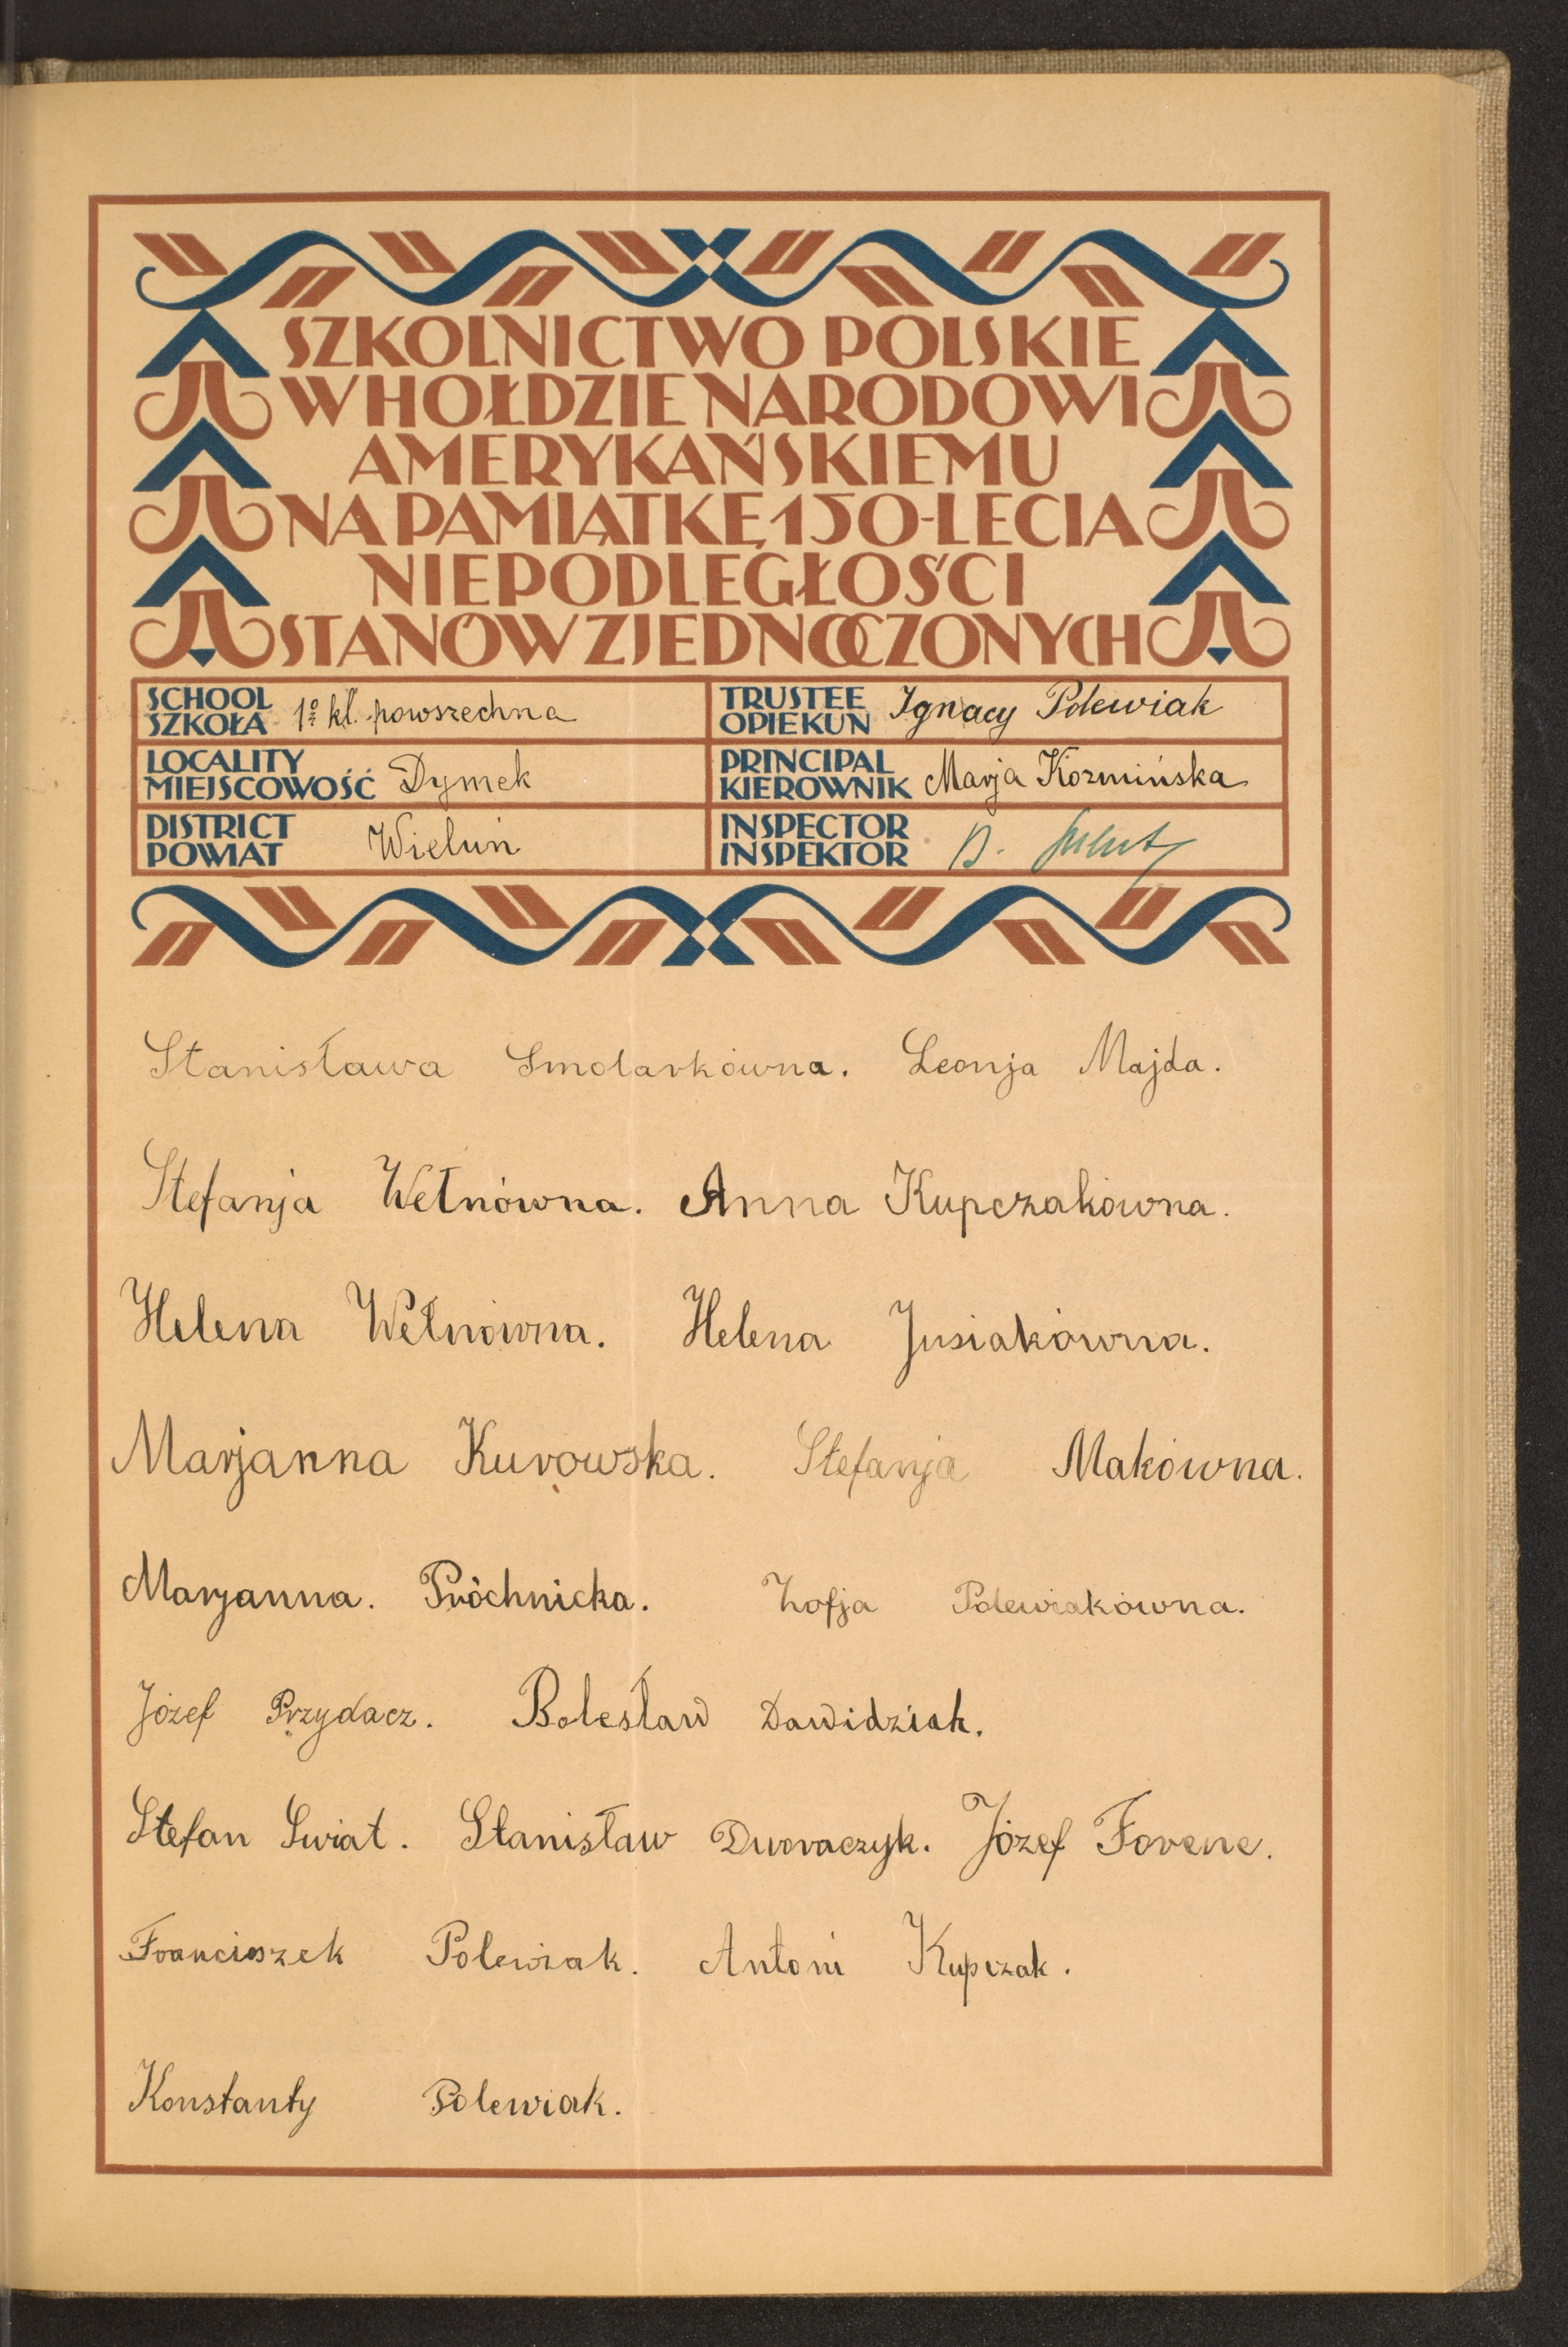 SZKOLNICTWO POLSKIE
W HOŁDZIE NARODOWI
AMERYKAŃSKIEMU
NA PAMIĄTKĘ 150-LECIA
NIEPODLEGŁOŚCI
STANÓW ZJEDNOCZONYCH
SCHOOL SZKOŁA 1º kl. powszechna
TRUSTEE OPIEKUN Ignacy Polewiak
LOCALITY MIEJSCOWOŚĆ Dymek
PRINCIPAL KIEROWNIK Marja Kozmińska
DISTRICT POWIAT Wieluń
INSPECTOR INSPEKTOR B.
Stanisława Smolarkówna. Leonja Majda.
Stefanja Wełnówna. Anna Kupczakówna.
Helena Wełnówna. Helena Jusiakówna.
Marjanna Kurowska. Stefanja Makówna.
Marjanna. Próchnicka. Zofja Polewiakówna.
Józef Przydacz. Bolesław Dawidziak.
Stefan Swiat. Stanisław Dworaczyk. Józef Forenc.
Franciszek Polewiak. Antoni Kupczak.
Konstanty Polewiak.